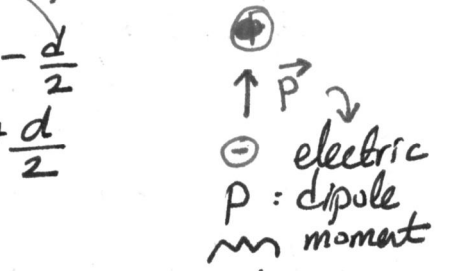 - d/2
+ d/2
p⃗
⊖ electric
p : dipole
moment